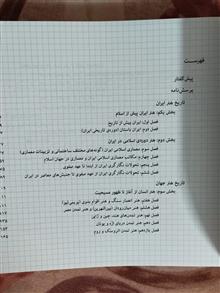 فهرست
پیش‌گفتار
پرسش‌نامه
تاریخ هنر ایران
بخش یکم: هنر ایران پیش از اسلام
فصل اول: ایران پیش از تاریخ
فصل دوم: ایران باستان (دوره‌ی تاریخی ایران)
بخش دوم: هنر دوره‌ی اسلامی در ایران
فصل سوم: معماری اسلامی ایران (گونه‌های مختلف ساختمانی و تزیینات معماری)
فصل چهارم: مکاتب معماری اسلامی ایران و معماری در جهان اسلام
فصل پنجم: تحولات نگارگری ایران از ابتدا تا عهد صفوی
فصل ششم: تحولات نگارگری ایران از عهد صفوی تا جنبش‌های معاصر در ایران
تاریخ هنر جهان
بخش سوم: هنر انسان از آغاز تا ظهور مسیحیت
فصل هفتم: هنر اعصار سنگ و هنر اقوام بدوی (بومی نیو)
فصل هشتم: هنر میان‌رودان (بین‌النهرین) و هنر تمدن مصر
فصل نهم: هنر تمدن‌های هند، چین و ژاپن
فصل دهم: هنر تمدن دریای اژه و یونان
فصل یازدهم: هنر تمدن اتروسک و روم